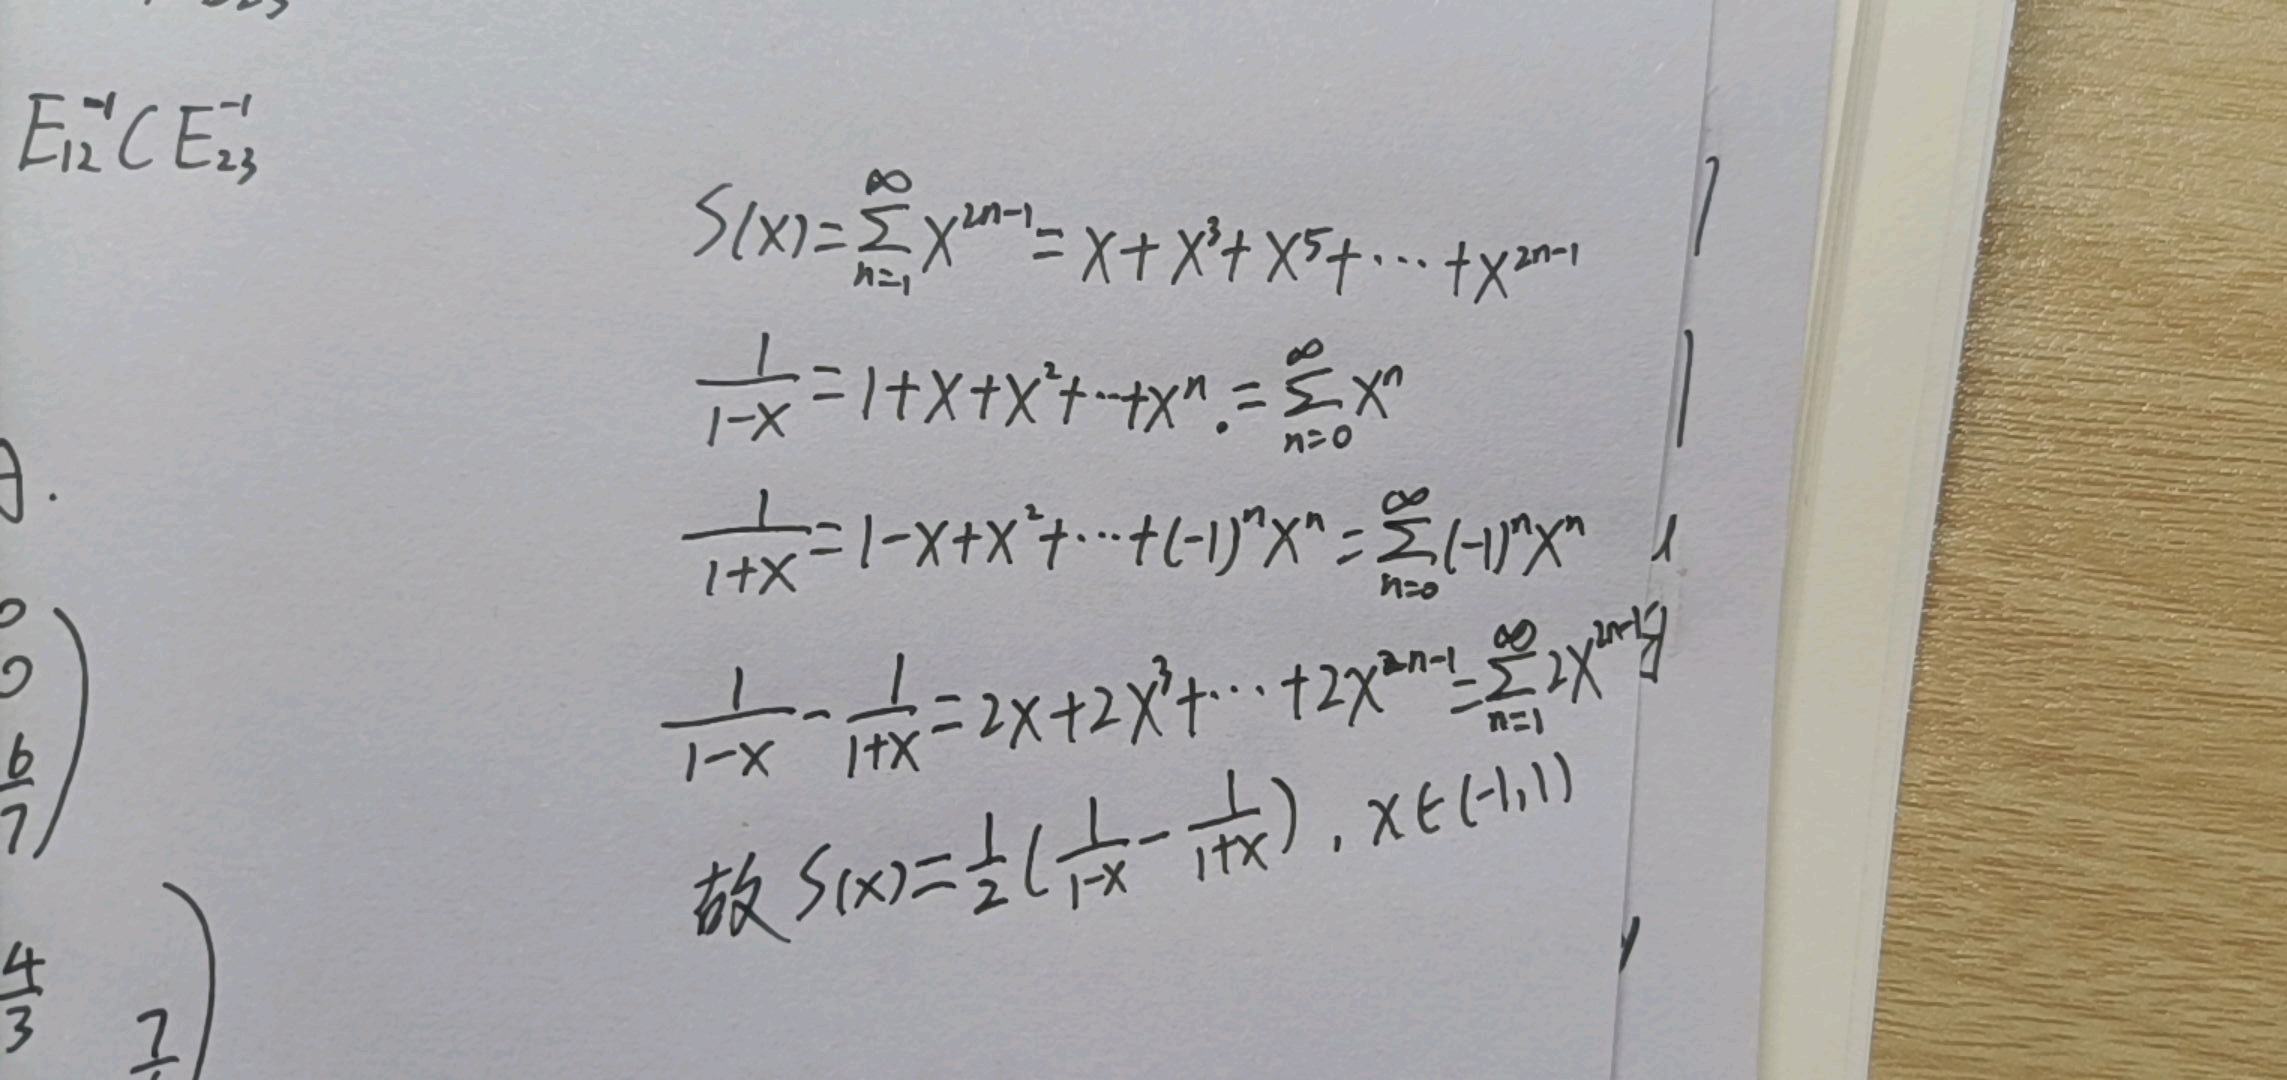 E₁₂⁻¹CE₂₃⁻¹
S(x)=∑_{n=1}^{∞}x^{2n-1}=x+x³+x⁵+⋯+x^{2n-1}
\frac{1}{1-x}=1+x+x²+⋯+xⁿ.=∑_{n=0}^{∞}xⁿ
\frac{1}{1+x}=1-x+x²+⋯+(-1)ⁿxⁿ=∑_{n=0}^{∞}(-1)ⁿxⁿ
\frac{1}{1-x}-\frac{1}{1+x}=2x+2x³+⋯+2x^{2n-1}=∑_{n=1}^{∞}2x^{2n-1}
故 S(x)=\frac{1}{2}(\frac{1}{1-x}-\frac{1}{1+x}), x∈(-1,1)
0
0
\frac{6}{7})
\frac{4}{3}
7